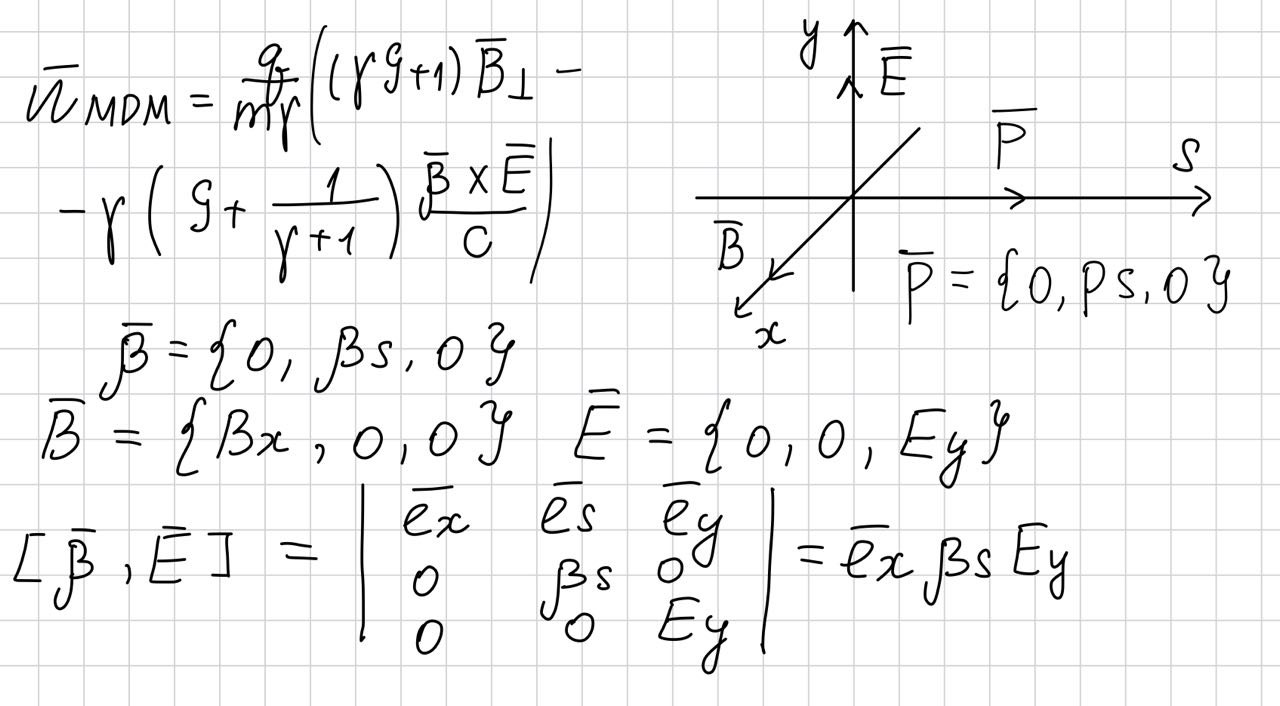 n̅ MDM = q/mγ ((γG+1) B̅⊥ −
− γ (G + 1/(γ+1)) β̅ × E̅ / c |
y
E̅
P̅
S
B̅
x
P̅ = {0, Ps, 0}
β̅ = {0, βs, 0}
B̅ = {Bx, 0, 0} E̅ = {0, 0, Ey}
[β̅, E̅] = | e̅x e̅s e̅y |
| 0 βs 0 |
| 0 0 Ey | = e̅x βs Ey